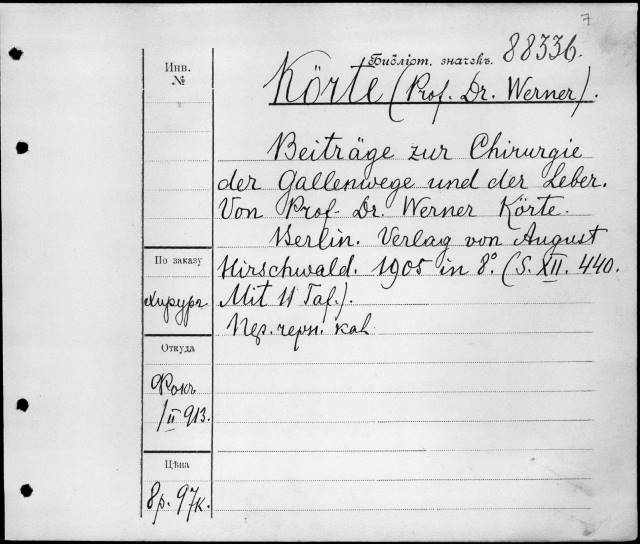 7
Библіот. значекъ. 88336.
Инв.
№
Körte (Prof. Dr. Werner).
Beiträge zur Chirurgie
der Gallenwege und der Leber.
Von Prof. Dr. Werner Körte.
Berlin. Verlag von August
Hirschwald. 1905 in 8°. (S. XII. 440.
Mit 11 Taf.).
Пер. черн. кал
По заказу
Хирург
Откуда
Фокъ
/II 913.
Цѣна
8р. 97к.